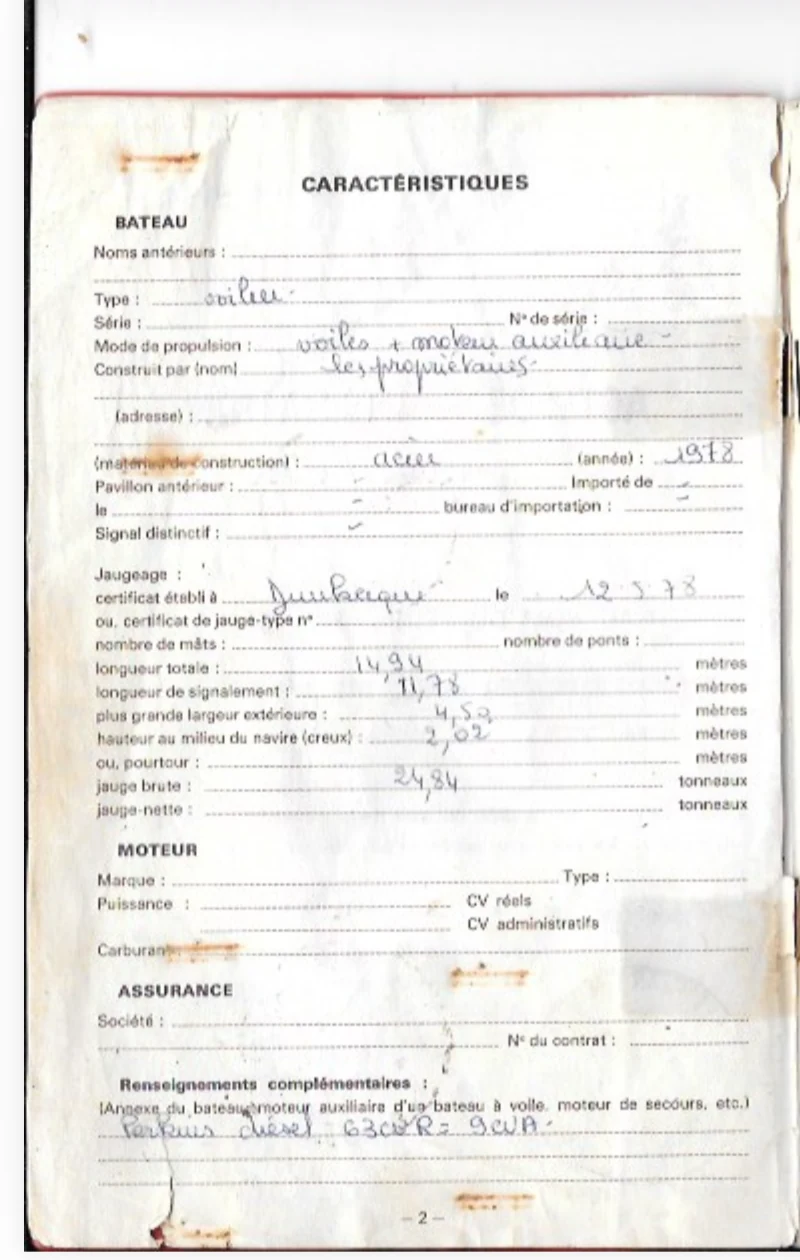 CARACTÉRISTIQUES
BATEAU
Noms antérieurs :
Type : voilier.
Série : N° de série :
Mode de propulsion : voiles + moteur auxiliaire -
Construit par (nom) les propriétaires-
(adresse) :
(matériau de construction) : acier (année) : 1978
Pavillon antérieur : - Importé de -
le - bureau d'importation : -
Signal distinctif : -
Jaugeage :
certificat établi à Dunkerque le 12.5.78
ou, certificat de jauge-type n°
nombre de mâts : nombre de ponts :
longueur totale : 14,94 mètres
longueur de signalement : 11,78 mètres
plus grande largeur extérieure : 4,50 mètres
hauteur au milieu du navire (creux) : 2,02 mètres
ou, pourtour : mètres
jauge brute : 24,84 tonneaux
jauge-nette : tonneaux
MOTEUR
Marque : Type :
Puissance : CV réels
CV administratifs
Carburant :
ASSURANCE
Société :
N° du contrat :
Renseignements complémentaires :
(Annexe du bateau, moteur auxiliaire d'un bateau à voile, moteur de secours, etc.)
Perkins diesel 63CVR = 9CVA.
- 2 -